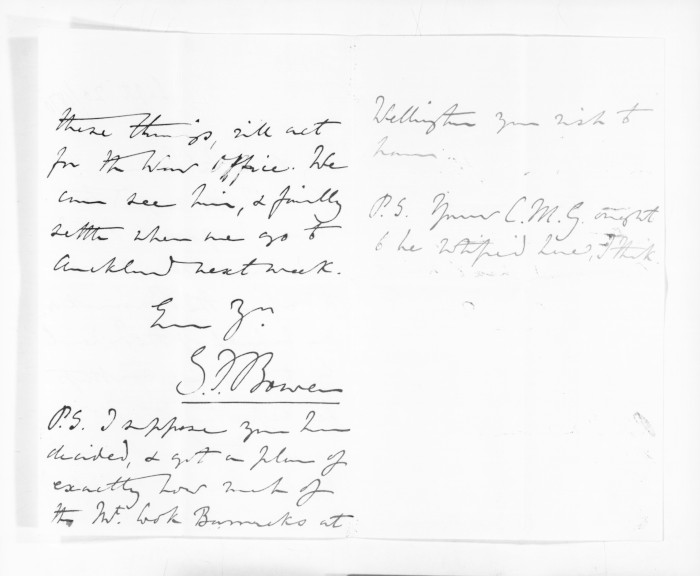 these things, will act
for the War Office. We
can see him, & finally
settle when we go to
Auckland next week.
Ever Yrs
G.F.Bowen
P.S. I suppose you have
decided, & got a plan of
exactly how much of
the Mt. Cook Barracks at
Wellington you wish to
have..
P.S. Your C.M.G. ought
to be here, I think.